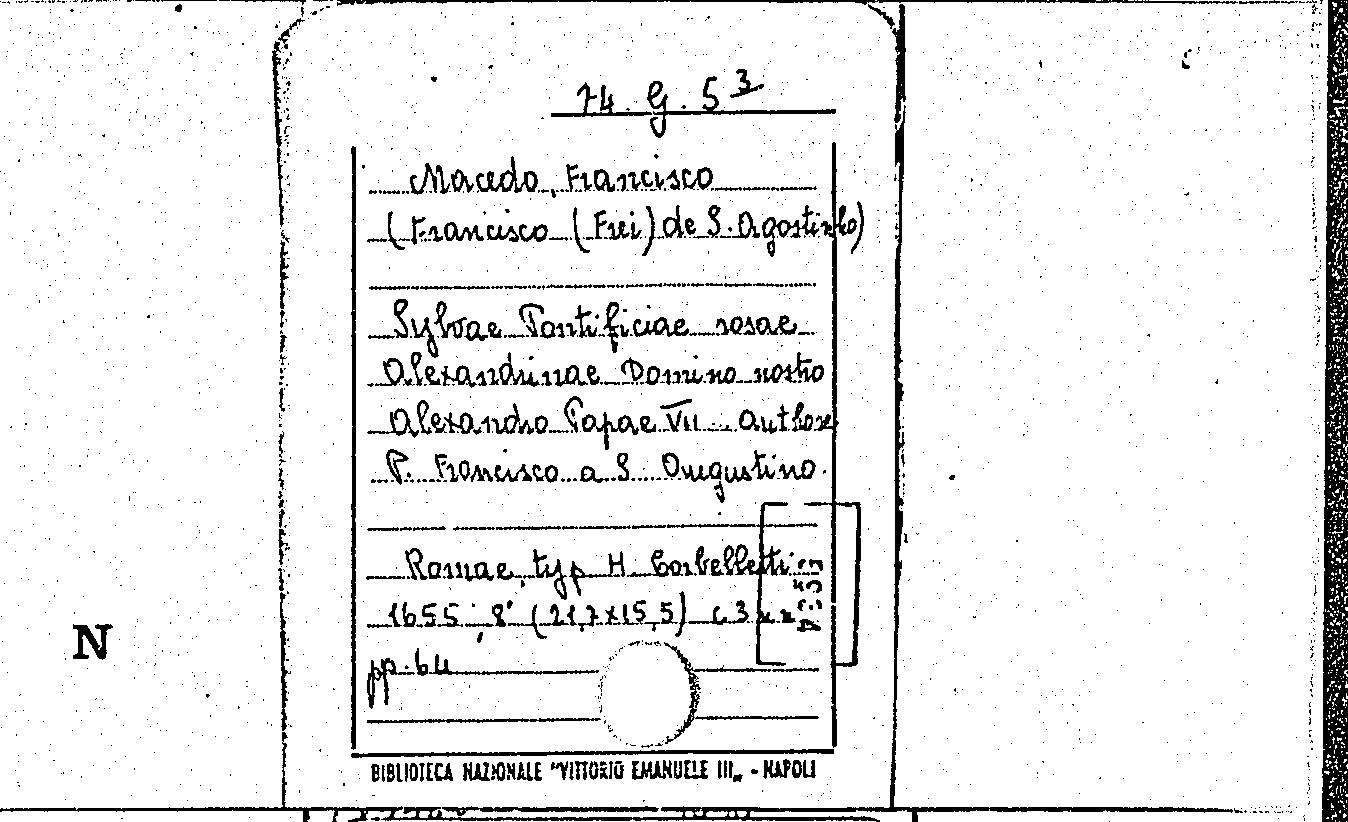 74. G. 5³
Macedo, Francisco
(Francisco (Frei) de S. Agostinho)
Sylvae Pontificiae rosae
Alexandrinae Domino nostro
Alexandro Papae VII. Authore
P. Francisco a S. Augustino.
Romae, typ H. Corbelletti
1655, 8° (21,7x15,5) c. 3
pp. 64
N
BIBLIOTECA NAZIONALE "VITTORIO EMANUELE III„ - NAPOLI